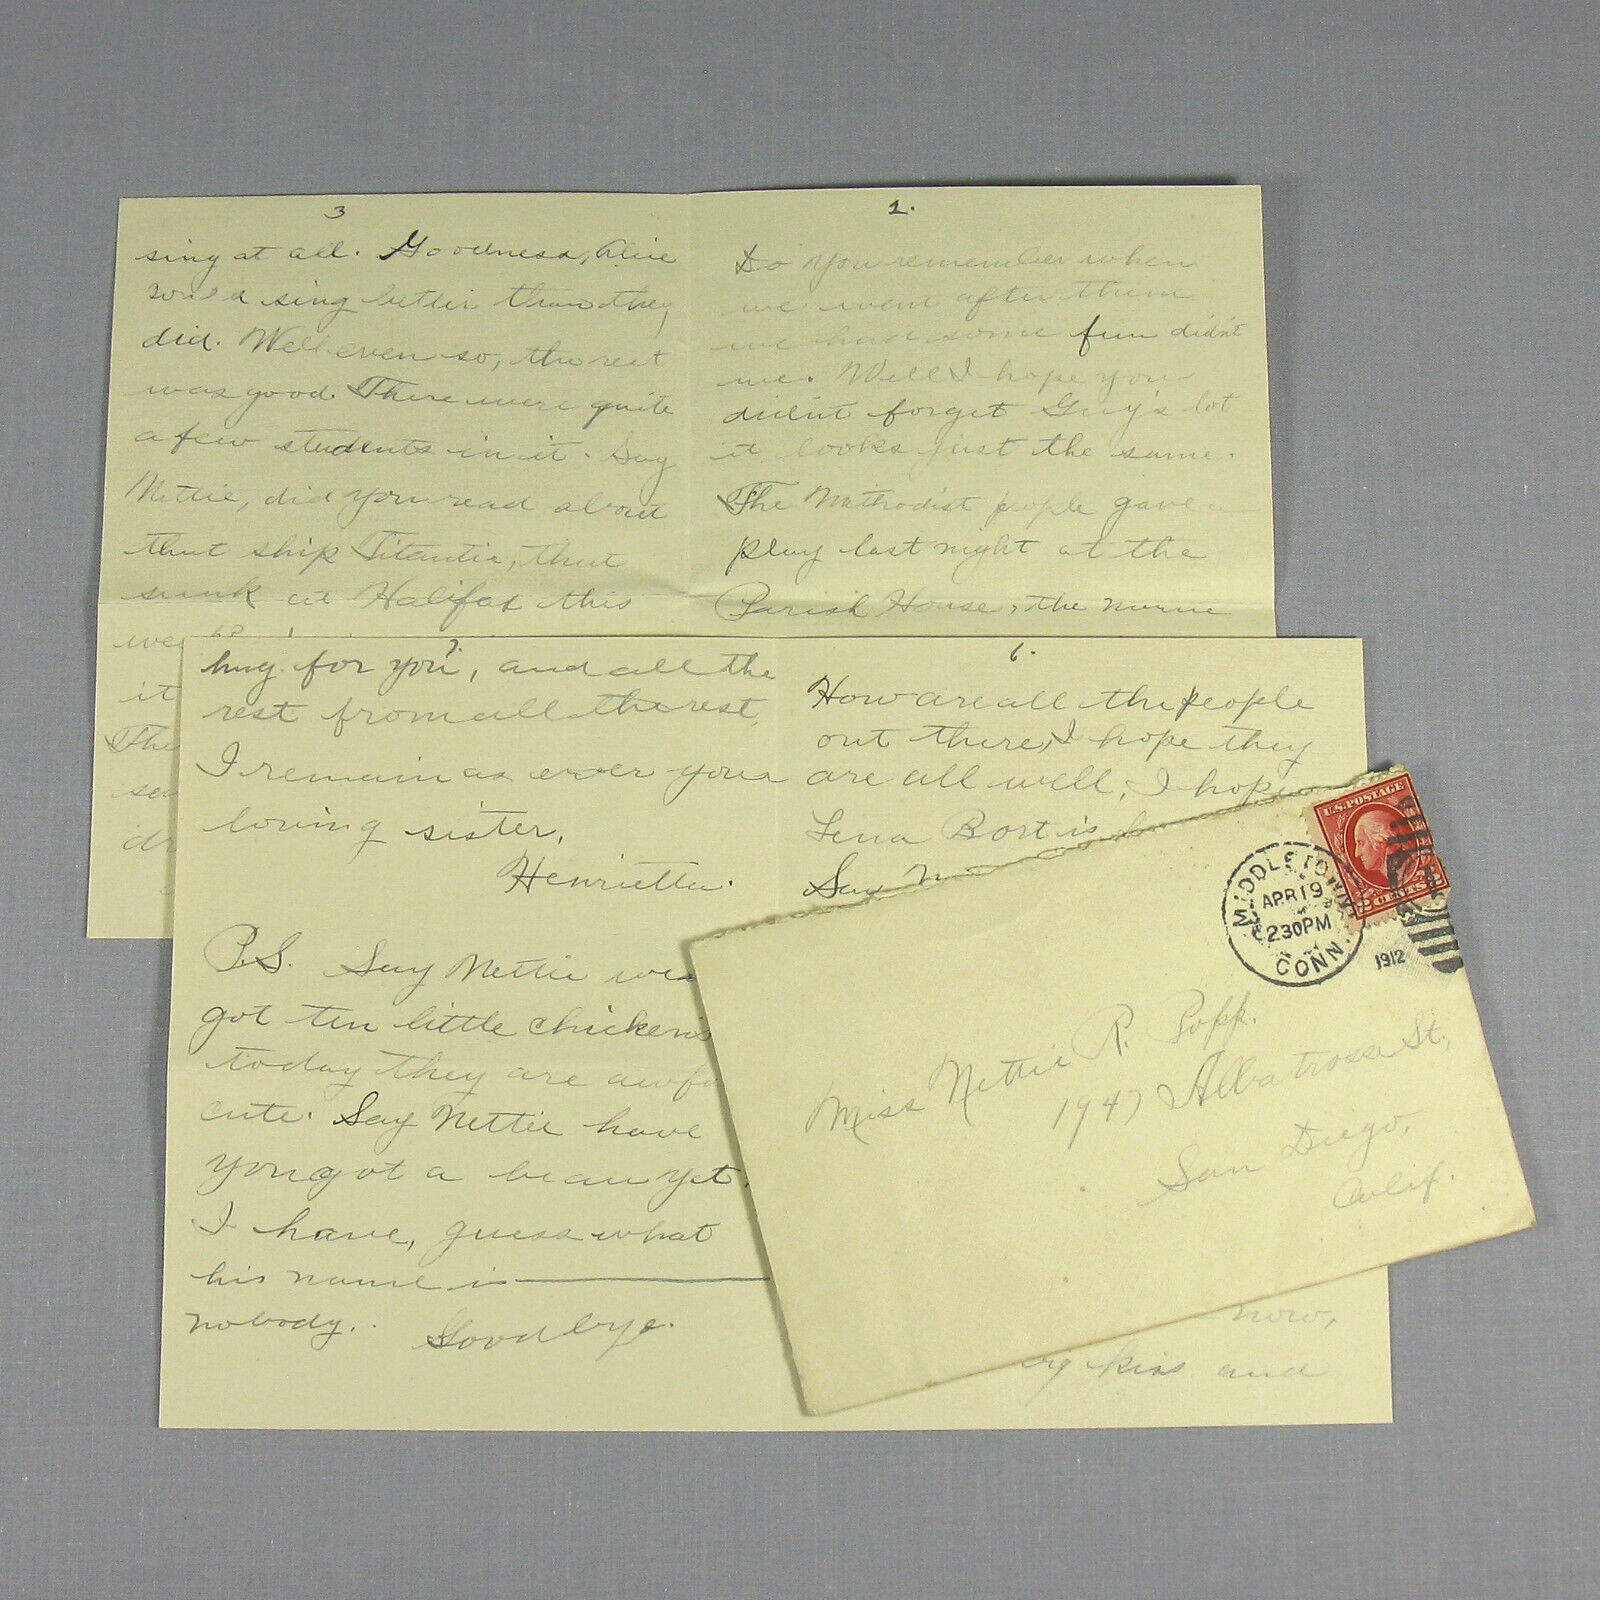 3
sing at all. Goodness, Alice
could sing better than they
did. Well even so, the rest
was good. There were quite
a few students in it. Say
Nettie, did you read about
that ship Titantic, that
sunk at Halifax this
it
The
2.
Do you remember when
we went after them
we had some fun didn't
we. Well I hope you
didn't forget Guy's lot
it looks just the same.
The Methodist people gave a
play last night at the
Parish House, the name
7.
hug for you, and all the
rest from all the rest,
I remain as ever your
loving sister,
Henrietta.
P.S. Say Nettie we
got ten little chickens
today they are
cute. Say Nettie have
you got a beau yet.
I have, guess what
his name is
nobody. Goodbye.
6.
How are all the people
out there, I hope they
are all well, I hope
Lena Bort is
Say
now,
kiss and
MIDDLETOWN
APR 19
230PM
1912
CONN.
U.S. POSTAGE
2 CENTS 2
Miss Nettie R. Popp.
1947 Albatross St,
San Diego,
Calif.